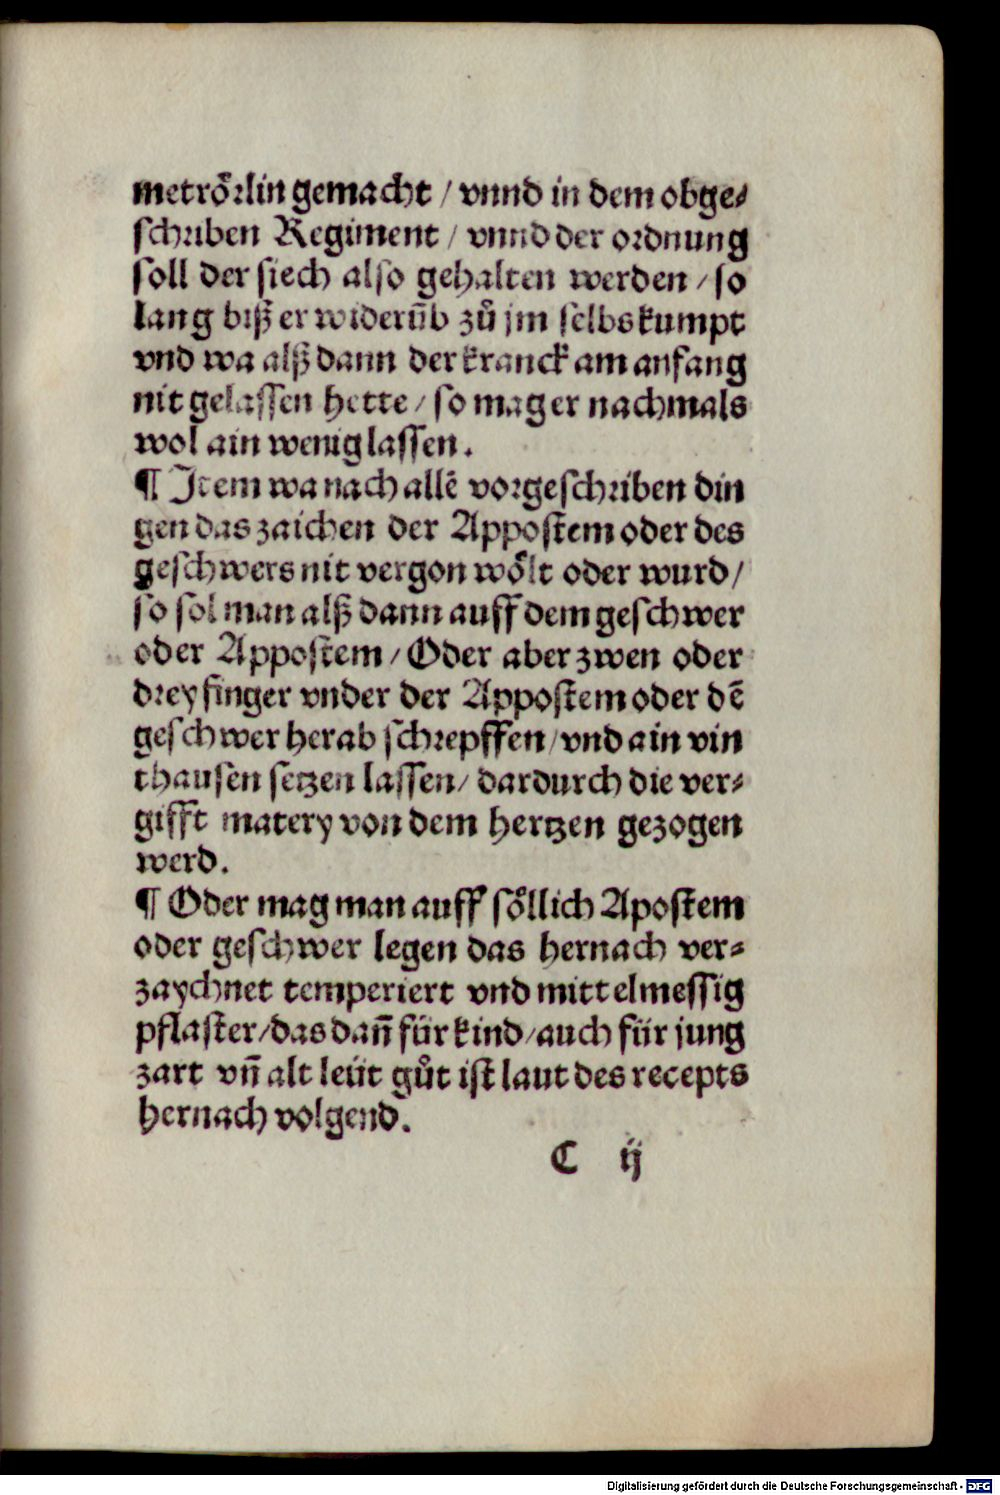 metroͤꝛlin gemacht / vnnd in dem obge⸗
ſchꝛiben Regiment / vnnd der oꝛdnung
ſoll der ſiech alſo gehalten werden / ſo
lang biß er widerūb zuͦ jm ſelbs kumpt
vnd wa alß dann der kranck am anfang
nit gelaſſen hette / ſo mag er nachmals
wol ain wenig laſſen.
¶ Item wa nach allē voꝛgeſchꝛiben din
gen das zaichen der Appoſtem oder des
geſchwers nit vergon woͤlt oder wurd /
ſo ſol man alß dann auff dem geſchwer
oder Appoſtem / Oder aber zwen oder
dꝛey finger vnder der Appoſtem oder dē
geſchwer herab ſchꝛepffen / vnd ain vin
thauſen ſetzen laſſen / dardurch die ver⸗
gifft matery von dem hertzen gezogen
werd.
¶ Oder mag man auff ſoͤllich Apoſtem
oder geſchwer legen das hernach ver⸗
zaychnet temperiert vnd mittelmeſſig
pflaſter / das dañ für kind / auch für jung
zart vñ alt leüt guͦt iſt laut des recepts
hernach volgend.
C ij
Digitalisierung gefördert durch die Deutsche Forschungsgemeinschaft - DFG